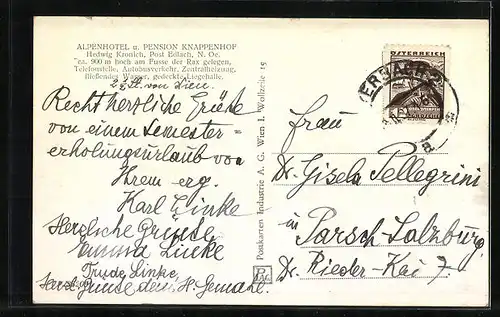 ALPENHOTEL u. PENSION KNAPPENHOF
Hedwig Kronich, Post Edlach, N. Oe.
ca. 900 m hoch am Fusse der Rax gelegen,
Telefonstelle, Autobusverkehr, Zentralheizung,
fließendes Wasser, gedeckte Liegehalle.
2½ St. von Wien.
Recht herzliche Grüße
von einem Semester-
erholungsurlaub von
Ihrem erg.
Karl Linke
Herzliche Grüsse
Emma Linke
Trude Linke
Handgüsse dem H. Gemahl.
Postkarten Industrie A. G. Wien I. Wollzeile 15
PAG
ÖSTERREICH
Frau
Dr. Gisela Pellegrini
in
Parsch-Salzburg
Dr. Rieder-Kai 7.